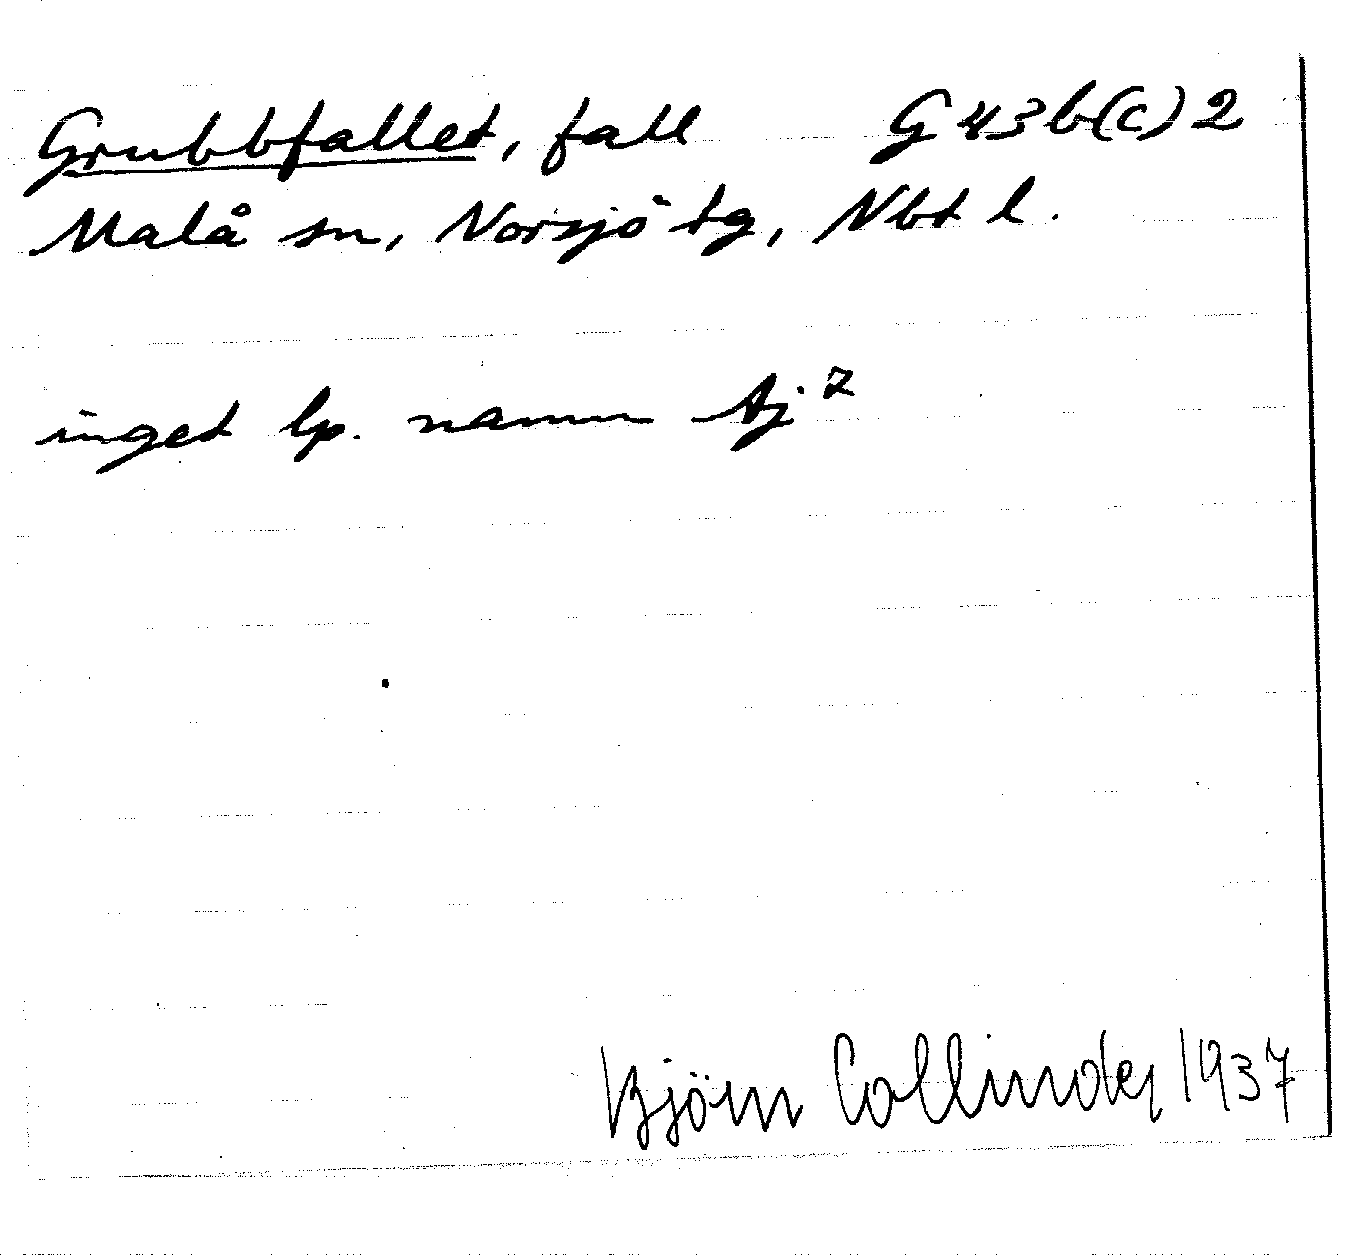 Grubbfallet, fall G 43 b(c) 2
Malå sn, Norsjö tg, Nbt l.
inget lp. namn
Björn Collinder 1937